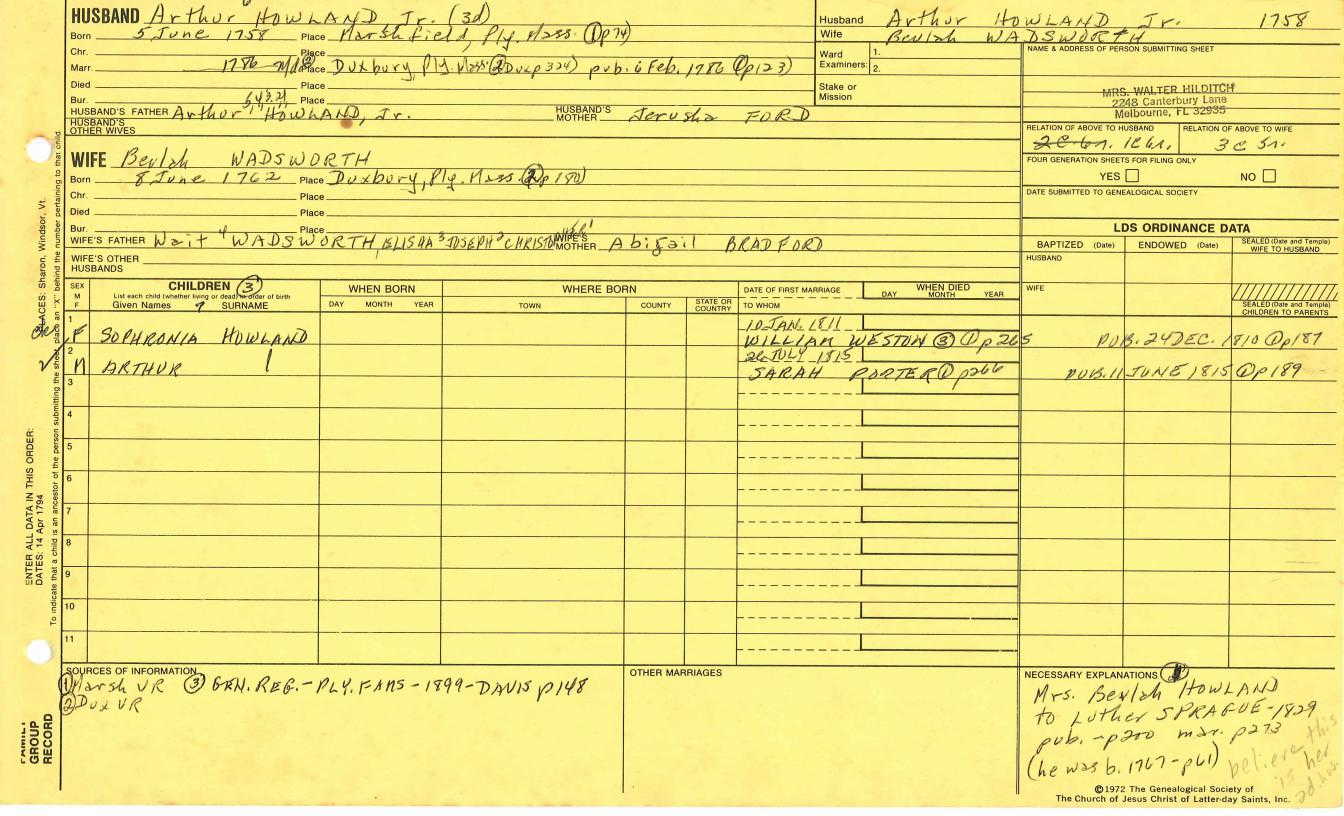 HUSBAND Arthur HOWLAND Jr. (3d)
Born 5 June 1758 Place Marshfield, Ply. Mass. (1 p74)
Chr. Place
Marr. 1786 Place Duxbury, Ply. Mass (2 Dux p 324) pub. 6 Feb. 1786 (1 p123)
Died Place
Bur. Place
HUSBAND'S FATHER Arthur HOWLAND, Jr. HUSBAND'S MOTHER Jerusha FORD
HUSBAND'S OTHER WIVES
WIFE Beulah WADSWORTH
Born 8 June 1762 Place Duxbury, Ply. Mass. (2 p 180)
Chr. Place
Died Place
Bur. Place
WIFE'S FATHER Wait 4 WADSWORTH, ELISHA 3 JOSEPH 2 CHRISTOPHER 1 WIFE'S MOTHER Abigail BRADFORD
WIFE'S OTHER HUSBANDS
Husband Arthur HOWLAND Jr. 1758
Wife Beulah WADSWORTH
Ward Examiners: 1.
2.
Stake or Mission
NAME & ADDRESS OF PERSON SUBMITTING SHEET
MRS. WALTER HILDITCH
2248 Canterbury Lane
Melbourne, FL 32935
RELATION OF ABOVE TO HUSBAND RELATION OF ABOVE TO WIFE
3c 5r.
FOUR GENERATION SHEETS FOR FILING ONLY
YES NO
DATE SUBMITTED TO GENEALOGICAL SOCIETY
LDS ORDINANCE DATA
BAPTIZED (Date) ENDOWED (Date) SEALED (Date and Temple) WIFE TO HUSBAND
HUSBAND
WIFE
SEALED (Date and Temple) CHILDREN TO PARENTS
SEX M F
CHILDREN (3)
List each child (whether living or dead) in order of birth
Given Names SURNAME
WHEN BORN
DAY MONTH YEAR
WHERE BORN
TOWN COUNTY STATE OR COUNTRY
DATE OF FIRST MARRIAGE
TO WHOM
WHEN DIED
DAY MONTH YEAR
1 10 JAN. 1811
F SOPHRONIA HOWLAND WILLIAM WESTON (3) (1) p 265 PUB. 24 DEC. 1810 (1) p187
2 26 JULY 1815
M ARTHUR SARAH PORTER (1) p266 PUB. 11 JUNE 1815 (1) p189
3
4
5
6
7
8
9
10
11
SOURCES OF INFORMATION
(1) Marsh VR (3) GEN. REG. - PLY. FAMS - 1899 - DAVIS p148
(2) Dux VR
OTHER MARRIAGES
NECESSARY EXPLANATIONS
Mrs. Beulah HOWLAND
to Luther SPRAGUE - 1829
pub. - p200 mar. p273
(he was b. 1767 - p61)
believe this
is her
2d. hus.
©1972 The Genealogical Society of
The Church of Jesus Christ of Latter-day Saints, Inc.
PLACES: Sharon, Windsor, Vt.
ENTER ALL DATA IN THIS ORDER:
DATES: 14 Apr 1794
To indicate that a child is an ancestor of the person submitting the sheet, place an "X" behind the number pertaining to that child.
FAMILY
GROUP
RECORD